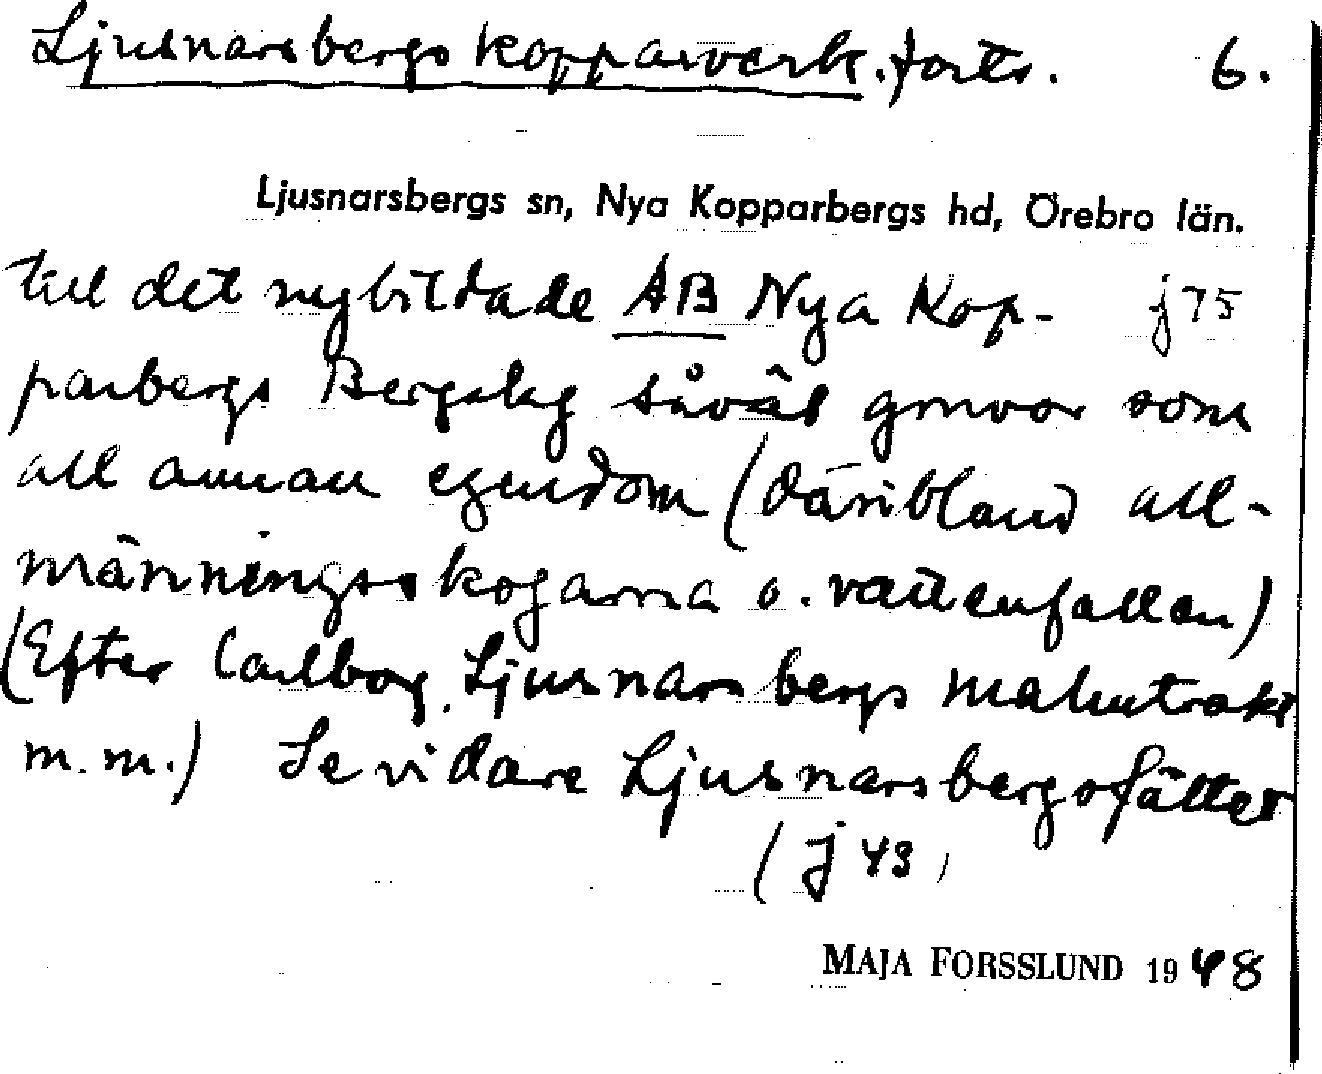 Ljusnarsbergs kopparverk. forts. 6.
Ljusnarsbergs sn, Nya Kopparbergs hd, Örebro län.
till det nybildade AB Nya Kop- j 75
parbergs Bergslag såväl gruvor som
all annan egendom (däribland all-
männingsskogarna o. vattenfallen)
(Efter Carlborg, Ljusnarsbergs malmtrakt
m.m.) Se vidare Ljusnarsbergsfältet
(j 43)
MAJA FORSSLUND 1948